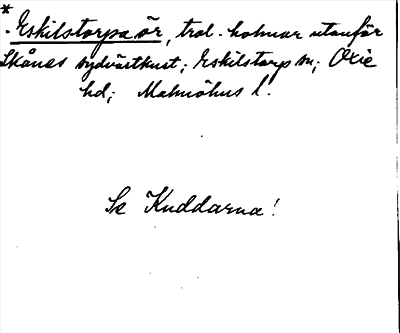 *
- Eskilstorpa ör, trol. holmar utanför
Skånes sydvästkust; Eskilstorp sn; Oxie
hd; Malmöhus l.
Se Kuddarna!